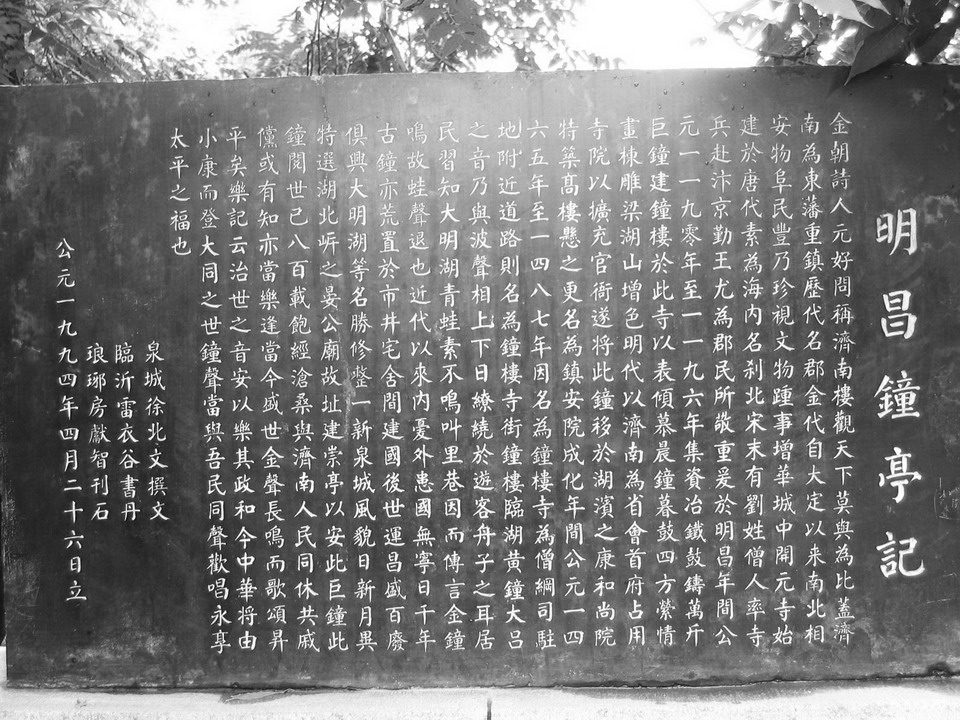 明昌鐘亭記
金朝詩人元好問稱濟南樓觀天下莫與為比蓋濟
南為東藩重鎮歷代名郡金代自大定以来南北相
安物阜民豐乃珍視文物踵事增華城中開元寺始
建於唐代素為海内名刹北宋末有劉姓僧人率寺
兵赴汴京勤王尤為郡民所敬重爰於明昌年間公
元一一九零年至一一九六年集資冶鐵鼓鑄萬斤
巨鐘建鐘樓於此寺以表傾慕晨鐘暮鼓四方縈情
畫棟雕梁湖山增色明代以濟南為省會首府占用
寺院以擴充官衙遂將此鐘移於湖濱之康和尚院
特築高樓懸之更名為鎮安院成化年間公元一四
六五年至一四八七年因名為鐘樓寺為僧綱司駐
地附近道路則名為鐘樓寺街鐘樓臨湖黄鐘大吕
之音乃與波聲相上下日繚繞於遊客舟子之耳居
民習知大明湖青蛙素不鳴叫里巷因而傳言金鐘
鳴故蛙聲退也近代以來内憂外患國無寧日千年
古鐘亦荒置於市井宅舍間建國後世運昌盛百廢
俱興大明湖等名勝修整一新泉城風貌日新月異
特選湖北岸之晏公廟故址建崇亭以安此巨鐘此
鐘閲世已八百載飽經滄桑與濟南人民同休共戚
儻或有知亦當樂逢當今盛世金聲長鳴而歌頌昇
平矣樂記云治世之音安以樂其政和今中華將由
小康而登大同之世鐘聲當與吾民同聲歡唱永享
太平之福也
泉城徐北文撰文
臨沂雷衣谷書丹
琅琊房獻智刊石
公元一九九四年四月二十六日立